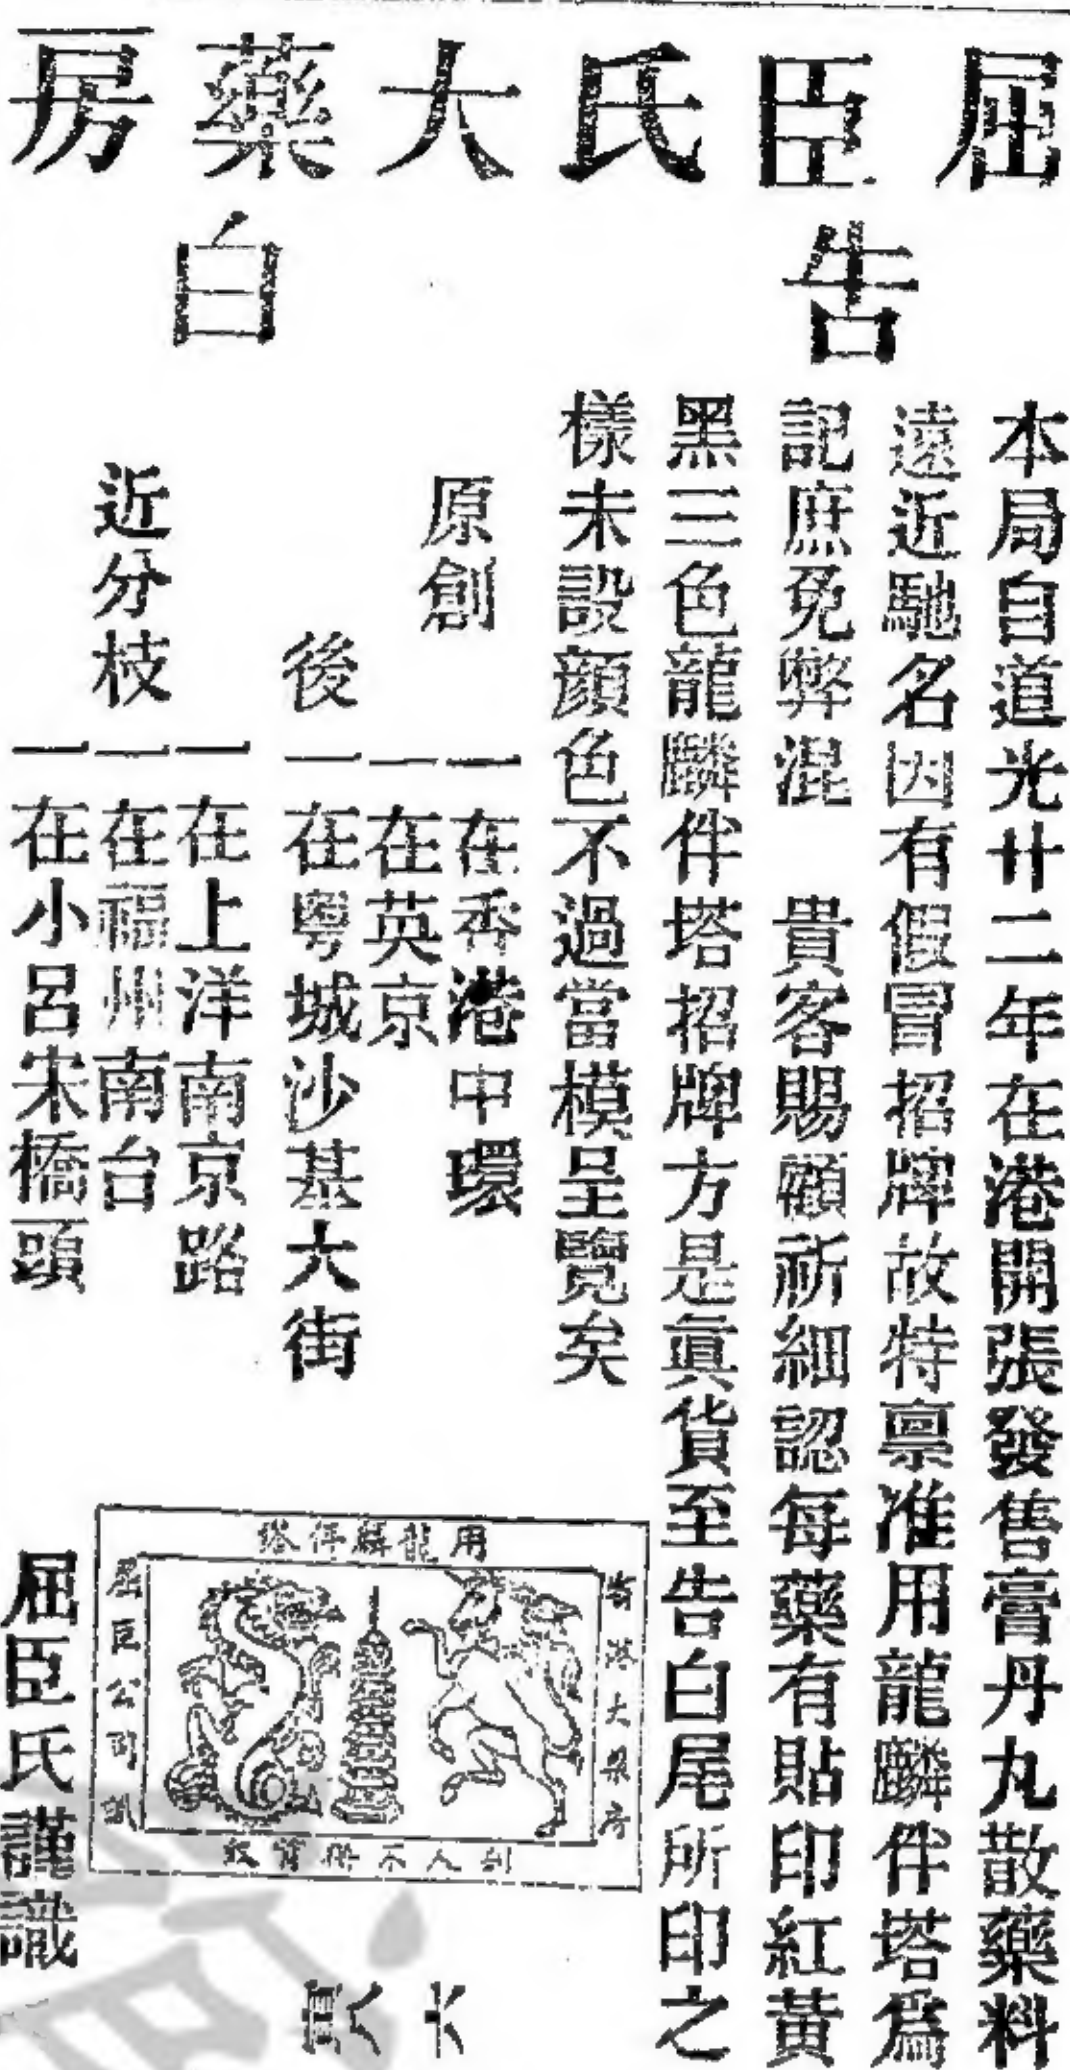 屈臣氏大藥房
告白
本局自道光廿二年在港開張發售膏丹丸散藥料
遠近馳名因有假冒招牌故特禀准用龍麟伴塔為
記庶免弊混 貴客賜顧祈細認每藥有貼印紅黃
黑三色龍麟伴塔招牌方是眞貨至告白尾所印之
樣未設顏色不過當模呈覽矣
原創
一在香港中環
一在英京
後
一在粵城沙基大街
近分枝
一在上洋南京路
一在福州南台
一在小呂宋橋頭
用龍麟伴塔
香港大藥房
屈臣公司
別人不得冒
屈臣氏謹識